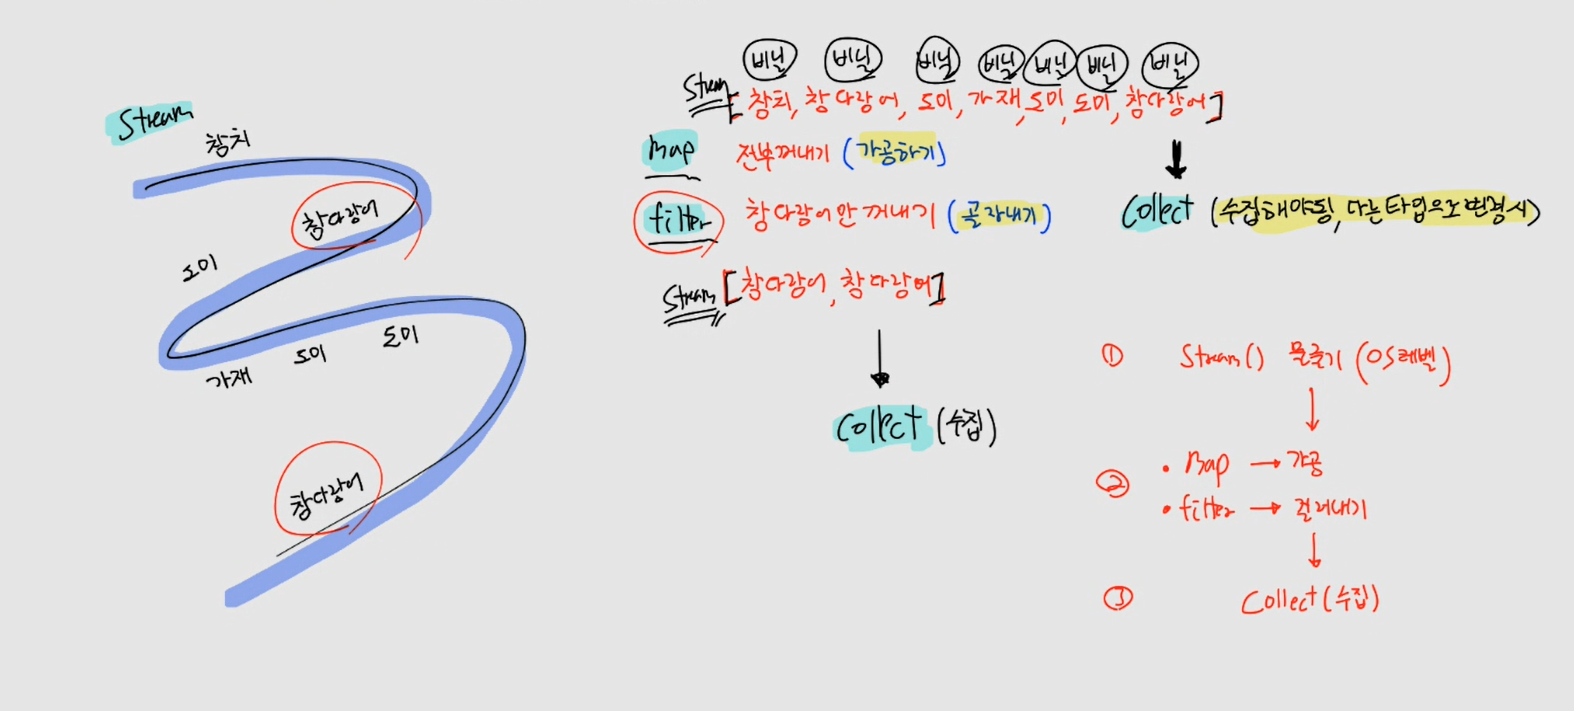 Stream
참치
참다랑어
도미
가재
도미
도미
참다랑어
비닐 비닐 비닐 비닐 비닐 비닐 비닐
Stream [참치, 참다랑어, 도미, 가재, 도미, 도미, 참다랑어]
Map 전부꺼내기 (가공하기)
filter 참다랑어만 꺼내기 (골라내기)
Stream [참다랑어, 참다랑어]
Collect (수집)
Collect (수집해야됨, 다른타입으로 변경시)
① Stream() 물줄기 (OS레벨)
②
• Map → 가공
• filter → 걸러내기
③ Collect (수집)